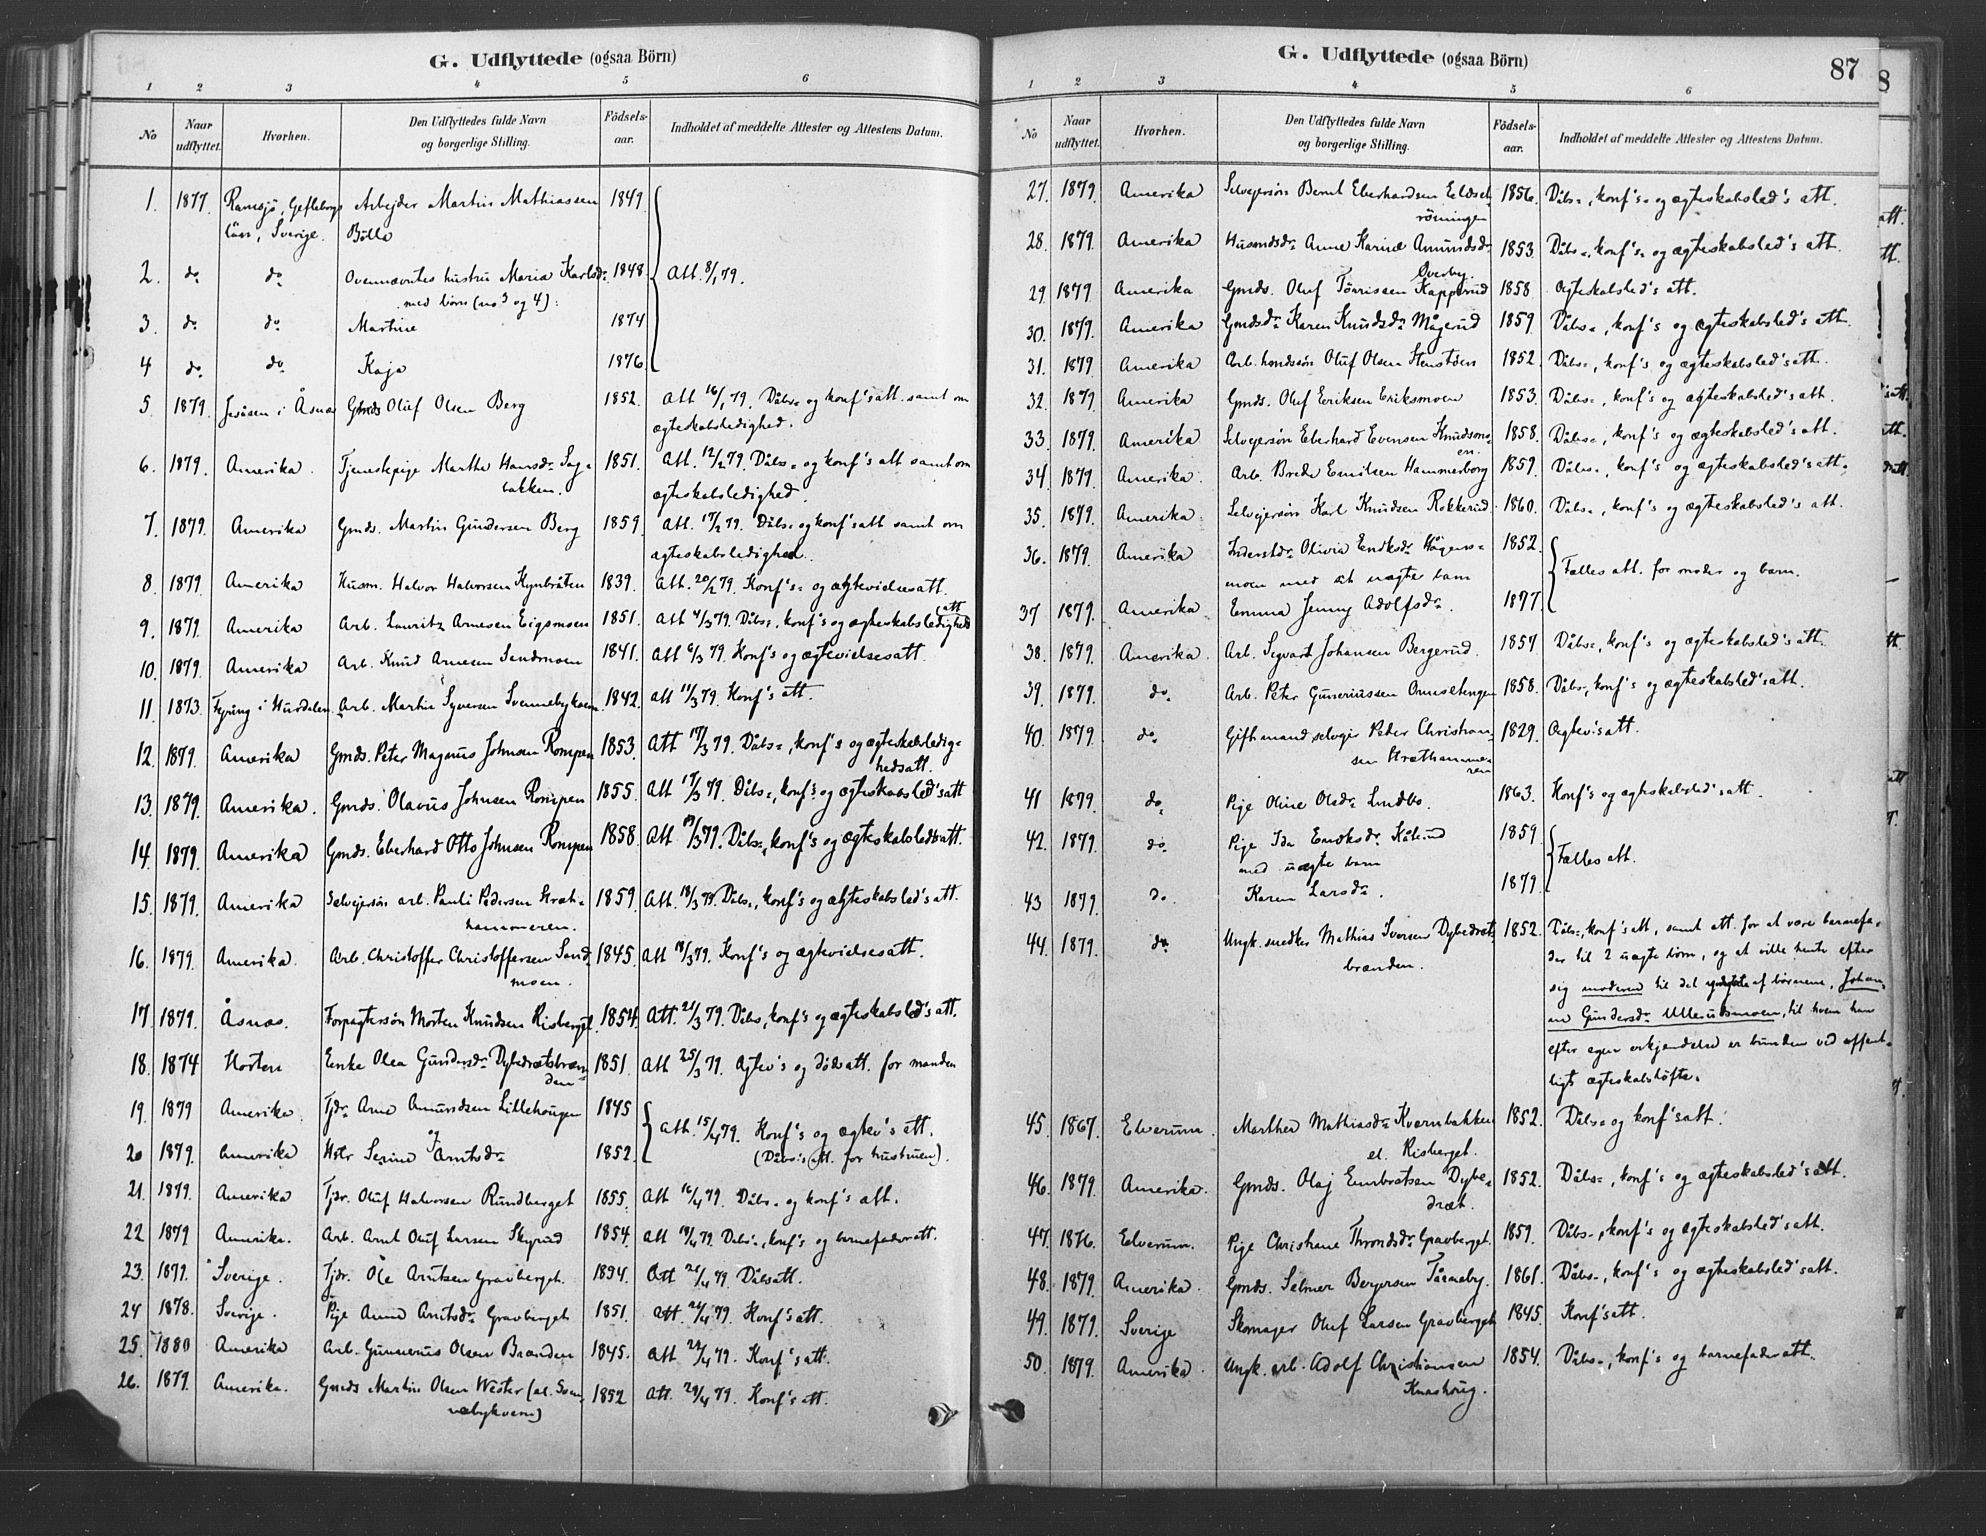 G. Udflyttede (ogsaa Börn)
1 2 3 4 5 6
No Naar udflyttet. Hvorhen. Den Udflyttedes fulde Navn og borgerlige Stilling. Födsels-aar. Indholdet af meddelte Attester og Attestens Datum.
1. 1877. Ramsjö, Gefleborgs Arbejder Martin Mathiassen 1849.
län, Sverige. Bölla
2. do do Ovennævntes hustru Maria Karlsdr 1848. Att. 8/1 79.
med börn (no 3 og 4):
3. do do Martine 1874
4 do do Kaja 1876.
5. 1879. i Åsnæs Gmds Oluf Olsen Berg 1852. Att 16/1 79. Dåbs- og konf's att. samt om
ægteskabsledighed.
6. 1879. Amerika. Tjenestepige Marthe Hansdr Sag- 1851. Att. 12/2 79. Dåbs- og konf's att samt om
bakken. ægteskabsledighed.
7. 1879. Amerika Gmds. Martin Gundersen Berg 1859 Att. 17/2 79. Dåbs- og konf's att samt om
ægteskabsledighed.
8. 1879 Amerika Husm. Halvor Halvorsen Kynbråten 1839. Att. 20/2 79. Konf's- og ægtevidsesatt.
9. 1879. Amerika Arb. Lauritz Arnesen Eigsmoen 1851. Att 4/3 79. Dåbs-, konf's og ægteskabsledigheds
att
10. 1879. Amerika Arb. Knud Arnesen Sandmoen 1841. Att 6/3 79. Konf's og ægtevidsesatt.
11. 1873. i Hurdalen. Arb. Martin Syversen 1842. Att 11/3 79. Konf's att.
12. 1879. Amerika Gmds. Peter Magnus Johnsen Rompen 1853. Att 17/3 79. Dåbs-, konf's og ægteskabsledig-
hedsatt.
13. 1879. Amerika. Gmds. Olavus Johnsen Rompen 1855. Att 17/3 79. Dåbs-, konf's og ægteskabsled's att
14. 1879. Amerika Gmds. Eberhard Otto Johnsen Rompen 1858 Att 17/3 79. Dåbs-, konf's og ægteskabsledsatt.
15. 1879. Amerika Selvejersön arb. Pauli Pedersen Kræt- 1859. Att. 18/3 79. Dåbs-, konf's og ægteskabsled's att.
hammeren.
16. 1879. Amerika. Arb. Christoffer Christoffersen Sand- 1845. Att 18/3 79. Konf's og ægtevidsesatt.
moen.
17. 1879. Åsnæs. Forpagtersön Morten Knudsen Risberget 1854. Att. 21/3 79. Dåbs, konf's og ægteskabsled's att.
18. 1874 Horten Enke Olea Gundersdr Dybedrætsbræn- 1851. Att 25/3 79. Ægtev's og dödsatt. for manden
den
19. 1879 Amerika. Tjdr Arne Amundsen Lillehougen 1845
og Att. 15/4 79. Konf's og ægtev's att.
20 1879. Amerika Hstr Serine Arntsdr 1852. (Dåbs's att. for hustruen).
21. 1879. Amerika Tjdr. Oluf Halvorsen Rundberget 1855. Att 16/4 79. Dåbs- og konf's att.
22 1879 Amerika. Arb. Arnt Oluf Larsen Skyrud 1854. Att 19/4 79. Dåbs-, konf's og barnefaderatt.
23. 1879. Sverige. Tjdr. Ole Arntsen Gravberget. 1834. Att 21/4 79 Dåbsatt.
24 1878. Sverige. Pige Anne Arntsdr Gravberget 1851. Att. 21/4 79. Konf's att.
25. 1880 Amerika Arb. Gunnerus Olsen Branden 1845. Att 21/4 79. Konf's att.
26. 1879. Amerika. Gmds Martin Olsen Wester (al. Sven- 1852 Att. 29/4 79. Konf's att.
næbykvern)
G. Udflyttede (ogsaa Börn)
87
1 2 3 4 5 6
No Naar udflyttet. Hvorhen. Den Udflyttedes fulde Navn og borgerlige Stilling. Födsels-aar. Indholdet af meddelte Attester og Attestens Datum.
27. 1879. Amerika Selvejersön Bernt Eberhardsen 1856. Dåbs-, konf's- og ægteskabsled's att.
28. 1879. Amerika Husmdsdr Anne Karine Amundsdr 1853. Dåbs-, konf's- og ægteskabsled's att.
Overby.
29 1879. Amerika Gmds. Oluf Törrissen Kapperud 1858. Ægteskabsled's att.
30. 1879. Amerika Gmdsdr Karen Knudsdr Mågerud 1859. Dåbs-, konf's og ægteskabsled's att.
31. 1879 Amerika Arb. Oluf Olsen Stenstsen 1852. Dåbs-, konf's og ægteskabsled's att.
32. 1879. Amerika Gmds. Oluf Eriksen Eriksmoen 1853. Dåbs-, konf's og ægteskabsled's att.
33. 1879. Amerika Selvejersön Eberhard Evensen Knudsmo- 1858. Dåbs-, konf's og ægteskabsled's att.
en.
34 1879. Amerika. Arb. Brede Emilsen Hammerborg 1859. Dåbs-, konf's og ægteskabsled's att.
35. 1879. Amerika Selvejersön Karl Knudsen Rokkerud. 1860. Dåbs-, konf's og ægteskabsled's att.
36. 1879. Amerika Inderstdr Olivia Eriksdr Högens- 1852.
moen med sit uægte barn Fælles att. for moder og barn.
37 1879. Amerika. Emma Jenny Adolfsdr. 1877.
38. 1879. Amerika. Arb. Sigvart Johansen Bergerud. 1854 Dåbs-, konf's og ægteskabsled's att.
39. 1879. do Arb. Peter Guneriussen Ormsetengen 1858. Dåbs-, konf's og ægteskabsled's att.
40. 1879. do Giftmand selvejer Peter Christian- 1829. Ægtev's att.
sen Kræthamme-
ren
41 1879. do Pige Oline Olsdr Lundbo. 1863. Konf's og ægteskabsled's att.
42. 1879. do Pige Ida Eriksdr Kålrud 1859
med uægte barn Fælles att.
43 1879. do. Karen Larsdr. 1879.
44. 1879. do Ungk. snedker Mathias Iversen Dybedræts- 1852. Dåbs-, konf's att, samt att. for at være barnefa-
brænden. der til 2 uægte börn, og at ville hente efter
sig moderen til det af börnene, Johan-
ne Gundersdr Ullerudsmoen, til hvem han
efter egen erkjendelse er bunden ved offent-
ligt ægteskabslöfte.
45. 1867. Elverum. Marthea Mathiasdr Kvernbakken 1852. Dåbs- og konf's att.
el. Risberget.
46. 1879. Amerika. Gmds. Olaj Embretsen Dybe- 1852. Dåbs-, konf's og ægteskabsled's att.
dræt.
47. 1876. Elverum. Pige Christiane Throndsdr Gravberget. 1859. Dåbs-, konf's og ægteskabsled's att.
48. 1879. Amerika. Gmds. Selmer Bergersen Tårneby. 1861. Dåbs-, konf's og ægteskabsled's att.
49. 1879. Sverige Skomager Oluf Larsen Gravberget 1845. Konf's att.
50 1879. Amerika. Ungk. arb. Adolf Christiansen 1854. Dåbs-, konf's og barnefaderatt.
Knashoug.